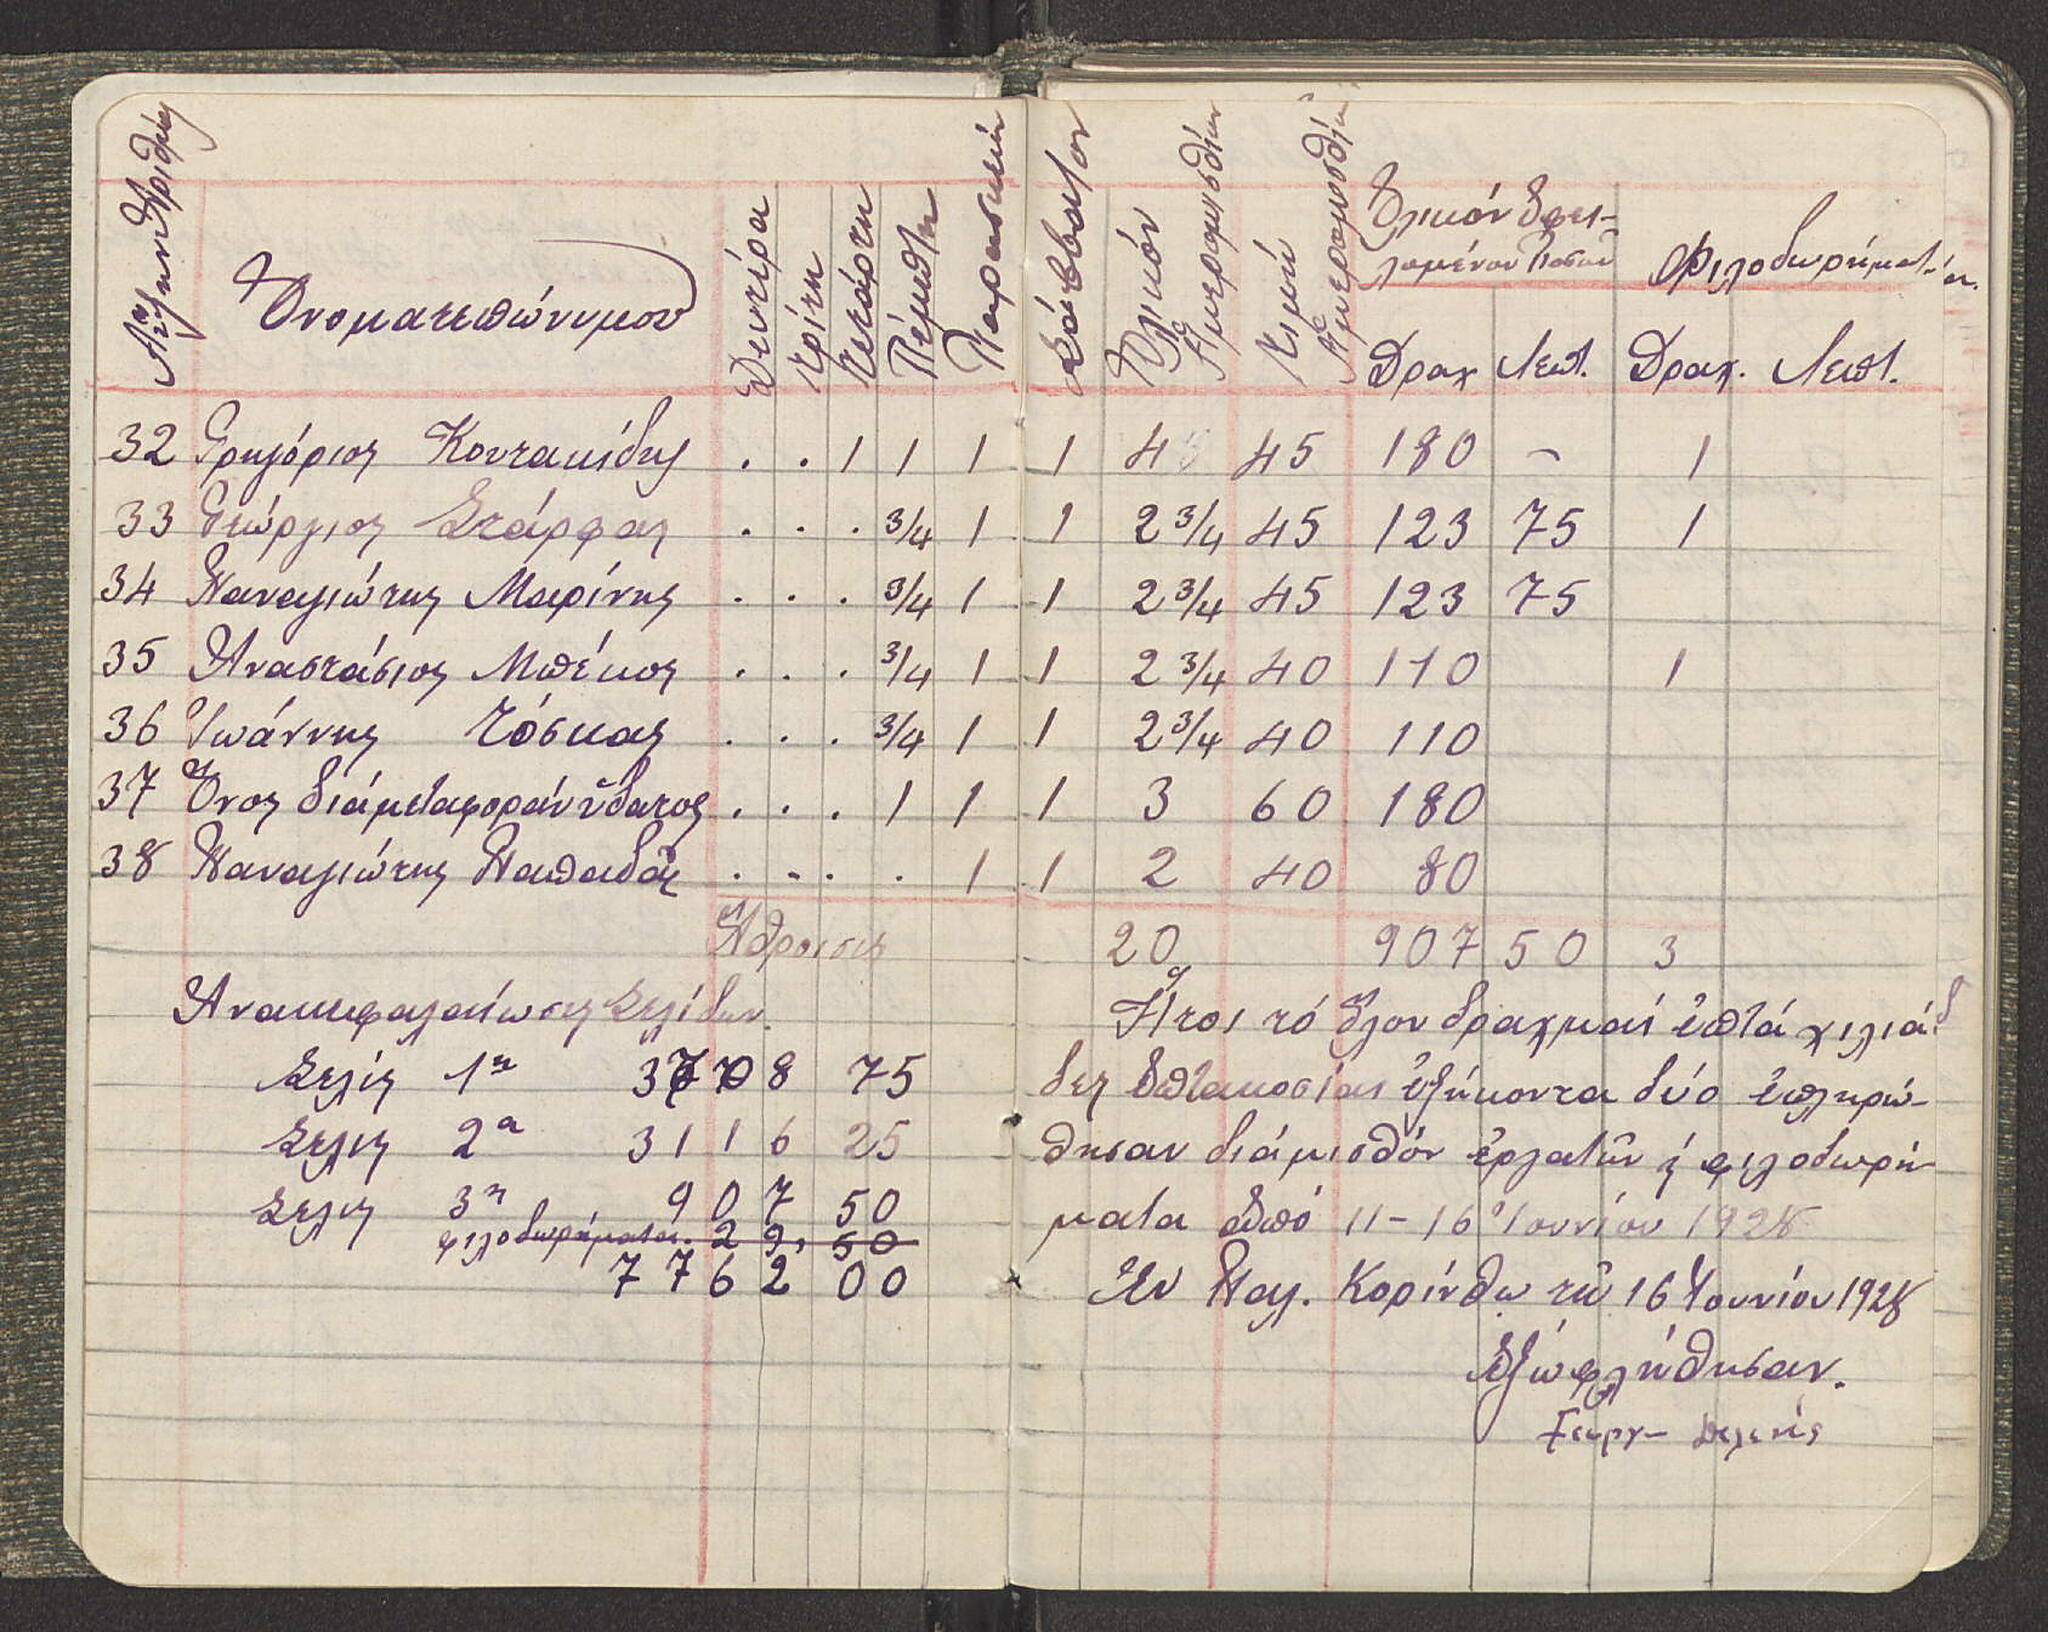 Αὔξην Ἀριθμός Ὀνοματεπώνυμον Δευτέρα Τρίτη Τετάρτη Πέμπτη Παρασκευή Σάββατον Ὁλικόν Ἡμερομισθίων Τιμή Ἡμερομισθίου Ὁλικόν Ὀφει- Φιλοδωρήματα
λομένον Ποσόν
Δραχ Λεπτ. Δραχ. Λεπτ.
32 Γρηγόριος Κουτακίδης . . 1 1 1 1 4 45 180 - 1
33 Γεώργιος Στάρφας . . . 3/4 1 1 2 3/4 45 123 75 1
34 Παναγιώτης Μαρίνης . . . 3/4 1 1 2 3/4 45 123 75
35 Ἀναστάσιος Μπέκος . . . 3/4 1 1 2 3/4 40 110 1
36 Ἰωάννης Τόσκας . . . 3/4 1 1 2 3/4 40 110
37 Ὄνος διά μεταφοράν ὕδατος . . . 1 1 1 3 60 180
38 Παναγιώτης Παπαδᾶς . . . . 1 1 2 40 80
Ἄθροισις 20 907 50 3
Ἀνακεφαλαίωσις Σελίδων.
Σελίς 1η 3708 75
Σελίς 2α 3116 25
Σελίς 3η 907 50
φιλοδωρήματα. 29, 50
7762 00
Ἤτοι τό ὅλον δραχμαί ἑπτά χιλιά-
δες ἑπτακοσίαι ἑξήκοντα δύο ἐπληρώ-
θησαν διά μισθόν ἐργατῶν ἤ φιλοδωρή-
ματα ἀπό 11-16 Ἰουνίου 1928
Ἐν Παλ. Κορίνθῳ τῇ 16 Ἰουνίου 1928
Ἐξωφλήθησαν.
Γεωργ-